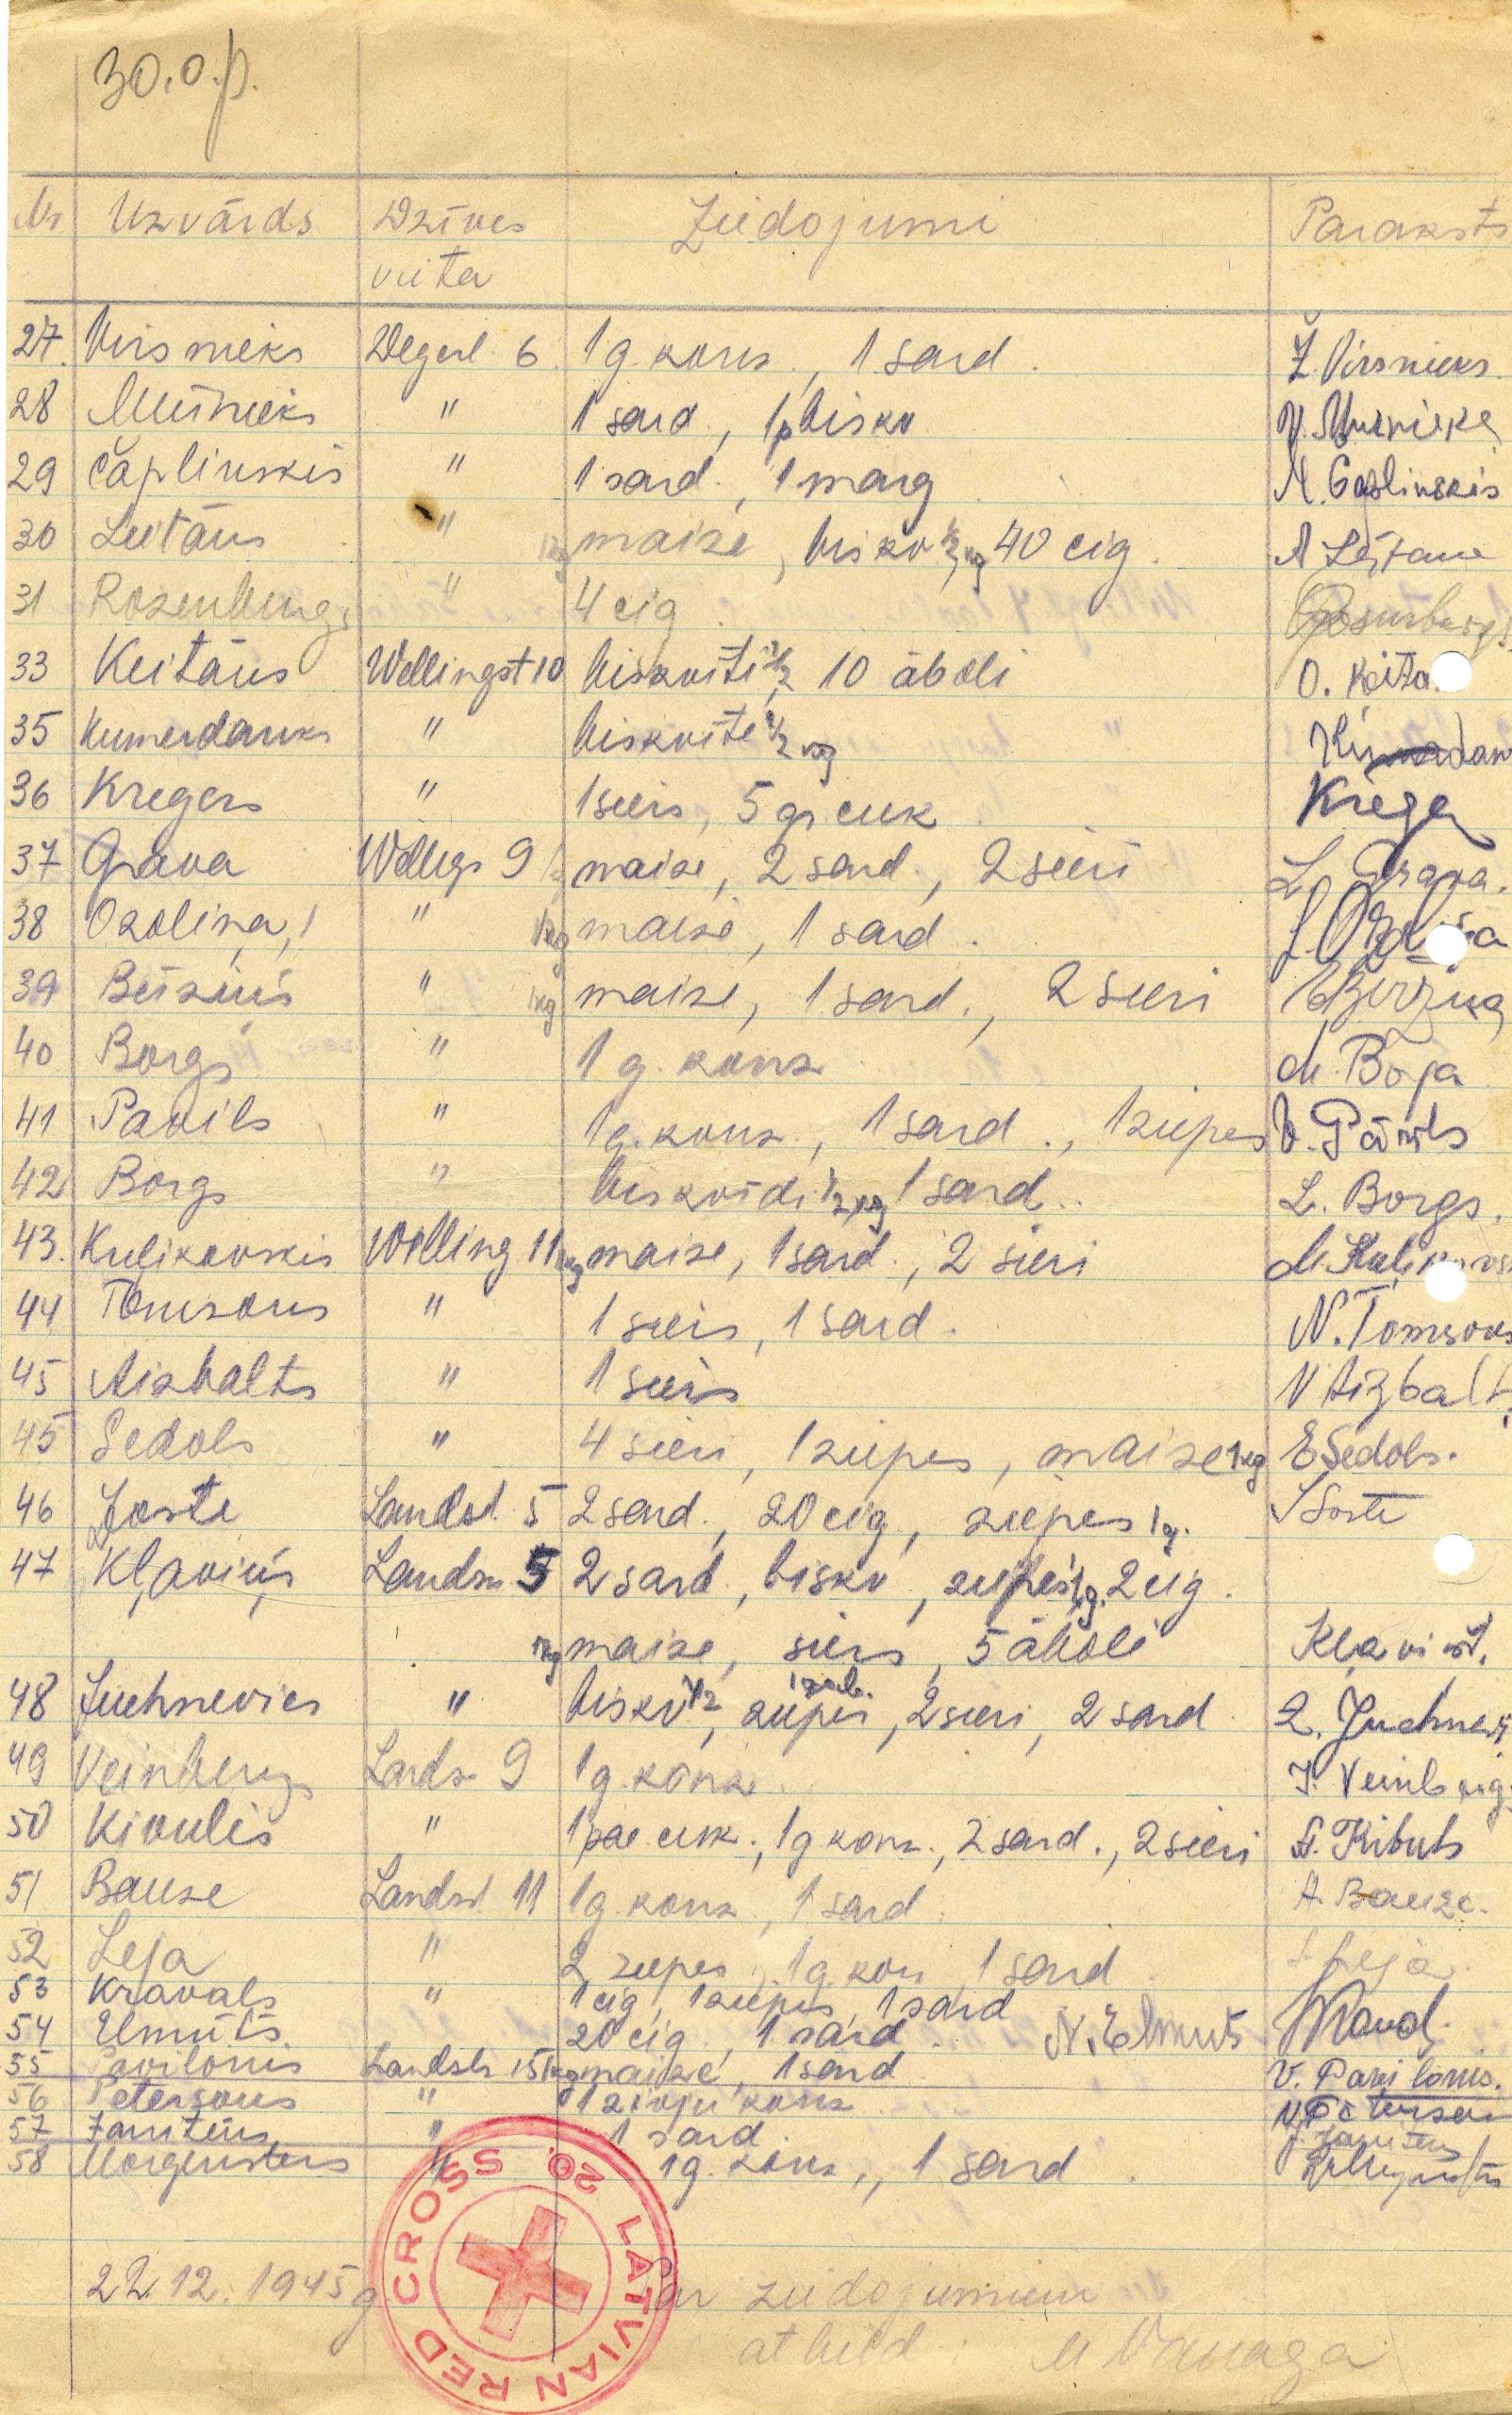 30.o.p.
Nr. Uzvārds Dzīves Ziedojumi Paraksts
vieta
27. Virsnieks Degerl. 6 1 g. kons., 1 sard. Ž. Virsnieks.
28 Mūrnieks " 1 sard., 1p biskv
29 Čaplinskis " 1 sard., 1 marg A. Čaplinskis
30 Leitāns " 1kg maize, biskv ½ kg 40 cig. A Leitane
31 Rozenbergs " 4 cig. Rosenbergs
33 Keitāns Wellingst 10 biskvīti ½, 10 āboli O. Keita
35 Kumerdanks " biskvīte ½ kg
36 Kregers " 1 siers, 5 gr cuk. Kregeŗ
37 Grava Wellings 9 maize, 2 sard., 2 sieri L. Grava.
38 Ozoliņa, I " 1kg maize, 1 sard.
39 Bērziņš " 1kg maize, 1 sard., 2 sieri
40 Borgs " 1 g. konz M. Boja
41 Pavils " 1 g. konz., 1 sard., 1 zupes V. Pāvils
42 Borgs " biskvīdi ½ kg 1 sard.. L. Borgs.
43. Kuļikovskis Welling 11 kg maize, 1 sard., 2 sieri
44 Tomsons " 1 siers, 1 sard. N. Tomsons
45 Aizbalts " 1 siers V Aizbalt
45 Sedols " 4 sieri, 1 zupes, maize 1 kg E Sedols.
46 Joste Landst. 5 2 sard., 20 cig., zupes 1 g.
47 Kļaviņš Landsu 5 2 sard., biskv, zupes 1 g. 2 cig.
1kg maize, siers, 5 āboli Kļaviņš.
48 Juchnevics " biskv ½, zupes, 2 sieri, 2 sard.
49 Veinbergs Lands. 9 1 g. konz. Veinbergs
50 Kivulis " 1 pac. cuk., 1 g konz., 2 sard., 2 sieri
51 Bauze Landst. 11 1 g. konz, 1 sard. A. Bauze.
52 Leja " 2 zupes, 1 g. kon 1 sard. Leja.
53 Kravals " 1 cig, 1 zupes, 1 sard
54 Elmuts 20 cig, 1 sard. N. Elmuts
55 Pavilonis Landsb 15 1kg maize, 1 sard V. Pavilonis.
56 Petersons " 1 zivju konz
57 Janitēns " 1 sard.
58 Morgensterns " 1 g. konz., 1 sard.
LATVIAN RED CROSS 20.
22.12.1945 g Par ziedojumiem
atbild: M Vanaga